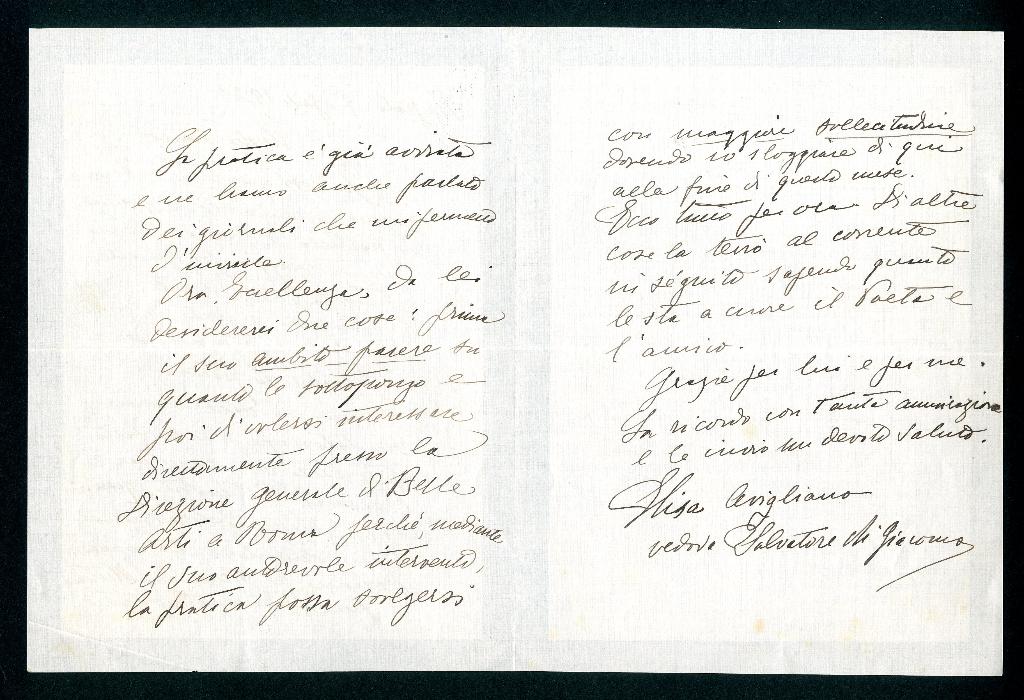 La pratica è già avviata
e ne hanno anche parlato
dei giornali che mi permetto
d'inviarle.
Ora, Eccellenza, da lei
desidererei due cose: prima
il suo ambito parere su
quanto le sottopongo e
poi di volersi interessare
direttamente presso la
Direzione generale di Belle
Arti a Roma perché, mediante
il suo autorevole intervento,
la pratica possa svolgersi
con maggiore sollecitudine
dovendo io sloggiare di qui
alla fine di questo mese.
Ecco tutto per ora. Di altre
cose la terrò al corrente
in séguito sapendo quanto
le sta a cuore il Poeta e
l'amico.
Grazie per lui e per me.
La ricordo con tanta ammirazione
e le invio un devoto saluto.
Elisa Avigliano
vedova Salvatore di Giacomo